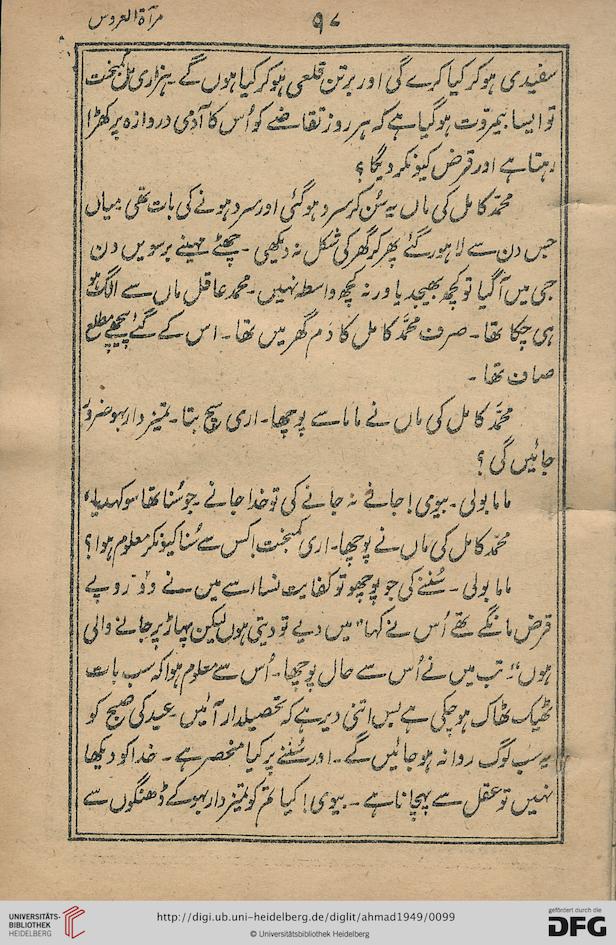 مرآۃ العروس
۹۷
سفیدی ہوکر کیا کرے گی اور برتن قلعی ہوکر کیا ہوں گے۔ ہزاری مل کمبخت
تو ایسا بیمروّت ہوگیا ہے کہ ہر روز تقاضے کو اُس کا آدمی دروازہ پر کھڑا
رہتا ہے اور قرض کیونکر دیگا؟
محمّد کامل کی ماں یہ سُن کر سرد ہوگئی اور سرد ہونے کی بات تھی میاں
جس دن سے لاہور گئے پھر کر گھر کی شکل نہ دیکھی۔ چھٹے مہینے برسویں دن
جی میں آگیا تو کچھ بھیجدیا ورنہ کچھ واسطہ نہیں۔ محمد عاقل ماں سے الگ ہو
ہی چکا تھا۔ صرف محمّد کامل کا دم گھر میں تھا۔ اس کے گئے پیچھے مطلع
صاف تھا۔
محمّد کامل کی ماں نے ماما سے پوچھا۔ اری سچ بتا۔ تمیزدار بہو ضرور
جائیں گی؟
ماما بولی۔ بیوی! جانے نہ جانے کی تو خدا جانے۔ جو سُنا تھا سو کہدیا۔
محمّد کامل کی ماں نے پوچھا۔ اری کمبخت! کس سے سُنا کیونکر معلوم ہوا؟
ماما بولی۔ سُننے کی جو پوچھو تو کفایت نساء سے میں نے دو روپے
قرض مانگے تھے اُس نے کہا "میں دیے تو دیتی ہوں لیکن پہاڑ پر جانے والی
ہوں"۔ تب میں نے اُس سے حال پوچھا۔ اُس سے معلوم ہوا کہ سب بات
ٹھیک ٹھاک ہوچکی ہے بس اتنی دیر ہے کہ تحصیلدار آئیں۔ عید کی صبح کو
یہ سب لوگ روانہ ہوجائیں گے۔ اور سُننے پر کیا منحصر ہے۔ خدا کو دیکھا
نہیں تو عقل سے پہچانا ہے۔ بیوی! کیا تم کو تمیزدار بہو کے ڈھنگوں سے
UNIVERSITÄTS-
BIBLIOTHEK
HEIDELBERG
http://digi.ub.uni-heidelberg.de/diglit/ahmad1949/0099
© Universitätsbibliothek Heidelberg
gefördert durch die
DFG